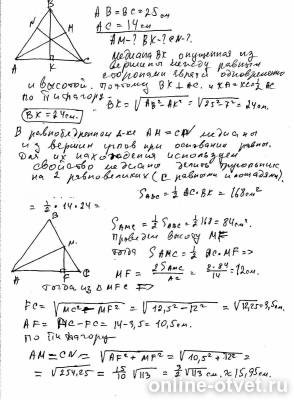 B
N
M
A
K
C
AB=BC=25см
AC=14см
AM-? BK-? CN-?
Медиана BK опущенная из
вершины между равными
сторонами
одновременно
и высотой. Поэтому BK⊥AC. и
По Пифагору BK=√AB²-AK²=√25²-7²=24см.
BK=24см.
В равнобедренном Δ-ке AM=CN медианы
из вершин углов при основании равны.
Для их нахождения используем
свойство медианы делить треугольник
на 2 равновеликих (с равными площадями).
S ABC=½AC·BK=168см²
=½·14·24=
B
M
A
F
C
S AMC=½S ABC=½168=84см².
Проведем высоту MF
Тогда S AMC=½AC·MF=>
MF=2S AMC/AC=2·84/14=12см.
Тогда из ΔMFC =>
FC=√MC²-MF²=√12,5²-12²=√12,25=3,5см.
AF=AC-FC=14-3,5=10,5см.
По Пифагору
AM=CN=√AF²+MF²=√10,5²+12²=
=√254,25=15/10√113=3/2√113см.≈15,95см.
online-otvet.ru